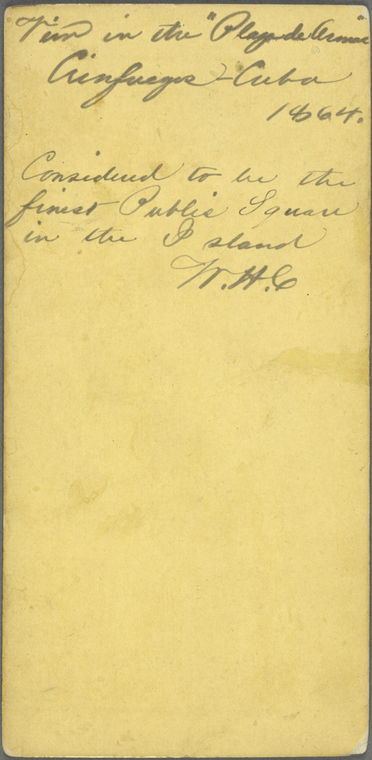 View in the "Plaza de Armas"
Cienfuegos - Cuba
1864.
Considered to be the
finest Public Square
in the Island
W.H.C